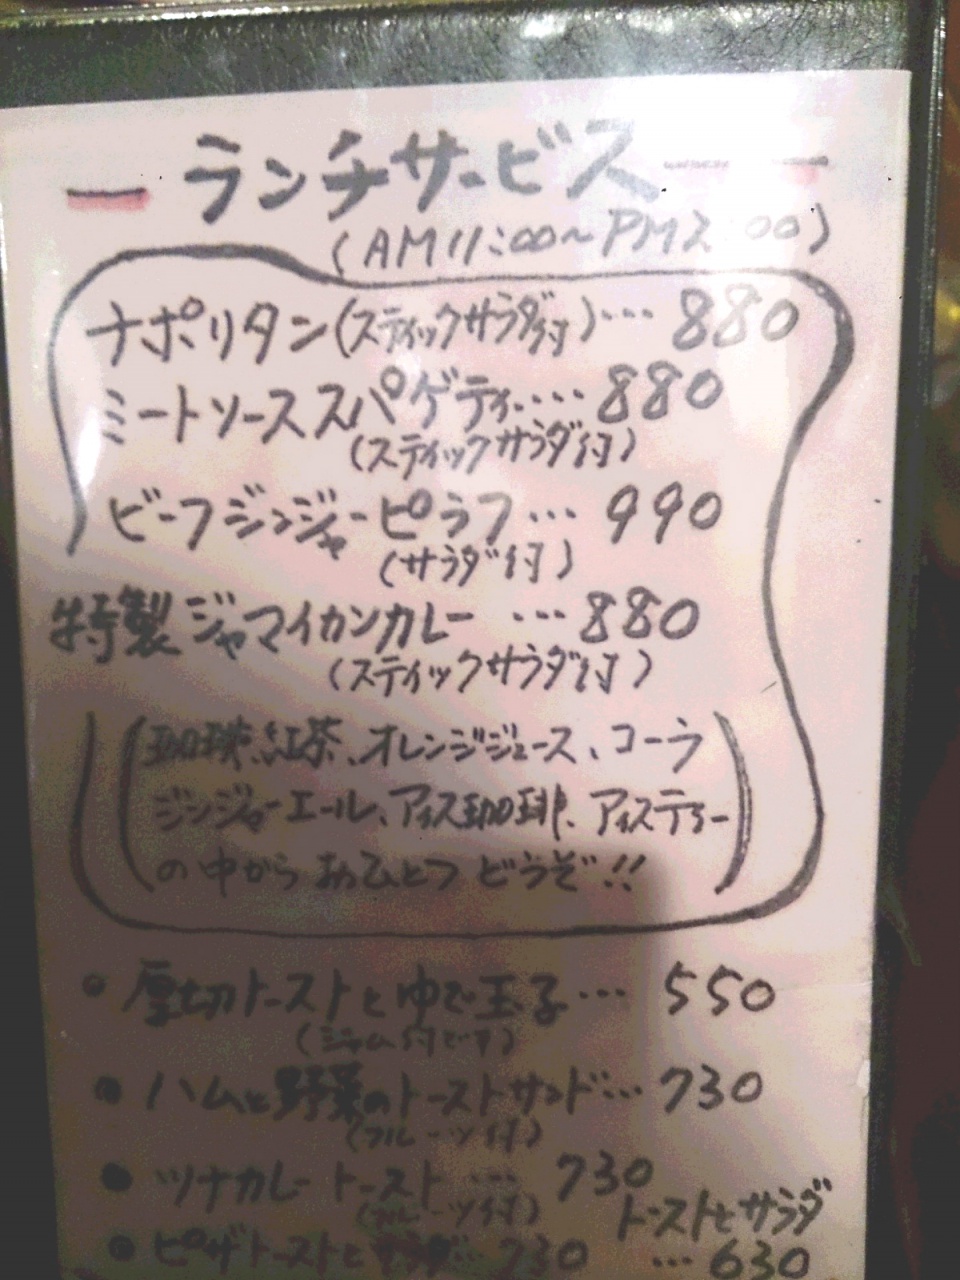 ランチサービス
(AM11:00～PM2:00)
ナポリタン(スティックサラダ付)… 880
ミートソーススパゲティ.... 880
(スティックサラダ付)
ビーフジンジャーピラフ… 990
(サラダ付)
特製ジャマイカンカレー …880
(スティックサラダ付)
(珈琲、紅茶、オレンジジュース、コーラ
ジンジャーエール、アイス珈琲、アイスティー
の中からおひとつどうぞ!!)
● 厚切トーストとゆで玉子… 550
(ジャム付です)
● ハムと野菜のトーストサンド… 730
(フルーツ付)
● ツナカレートースト … 730
(フルーツ付)
トーストとサラダ
● ピザトーストとサラダ… 730 …630